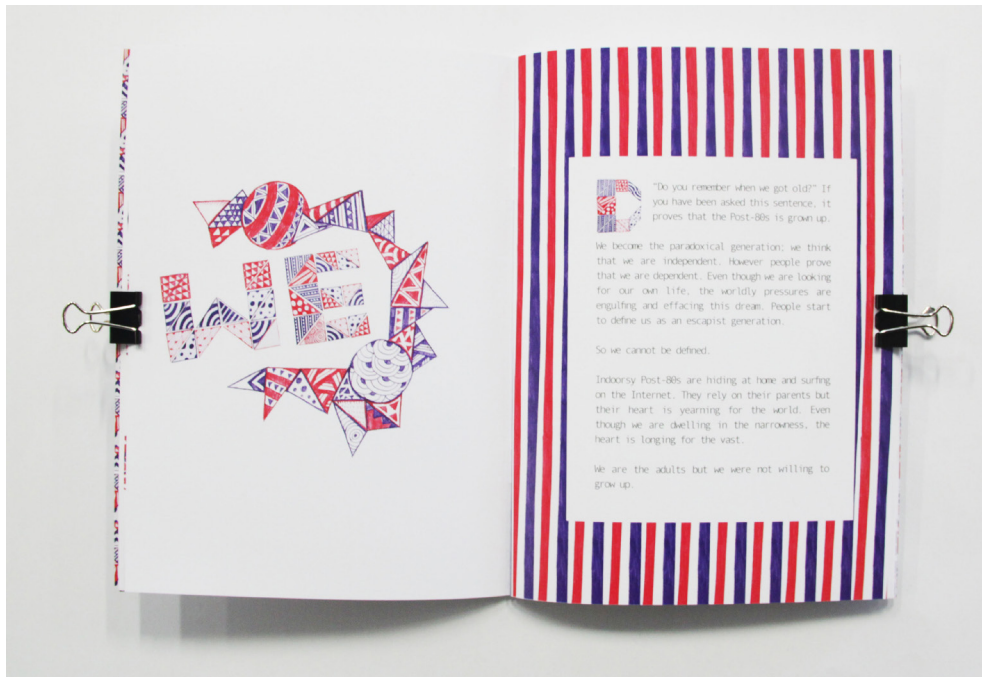 WE
P
"Do you remember when we got old?" If
you have been asked this sentence, it
proves that the Post-80s is grown up.
We become the paradoxical generation; we think
that we are independent. However people prove
that we are dependent. Even though we are looking
for our own life, the worldly pressures are
engulfing and effacing this dream. People start
to define us as an escapist generation.
So we cannot be defined.
Indoorsy Post-80s are hiding at home and surfing
on the Internet. They rely on their parents but
their heart is yearning for the world. Even
though we are dwelling in the narrowness, the
heart is longing for the vast.
We are the adults but we were not willing to
grow up.